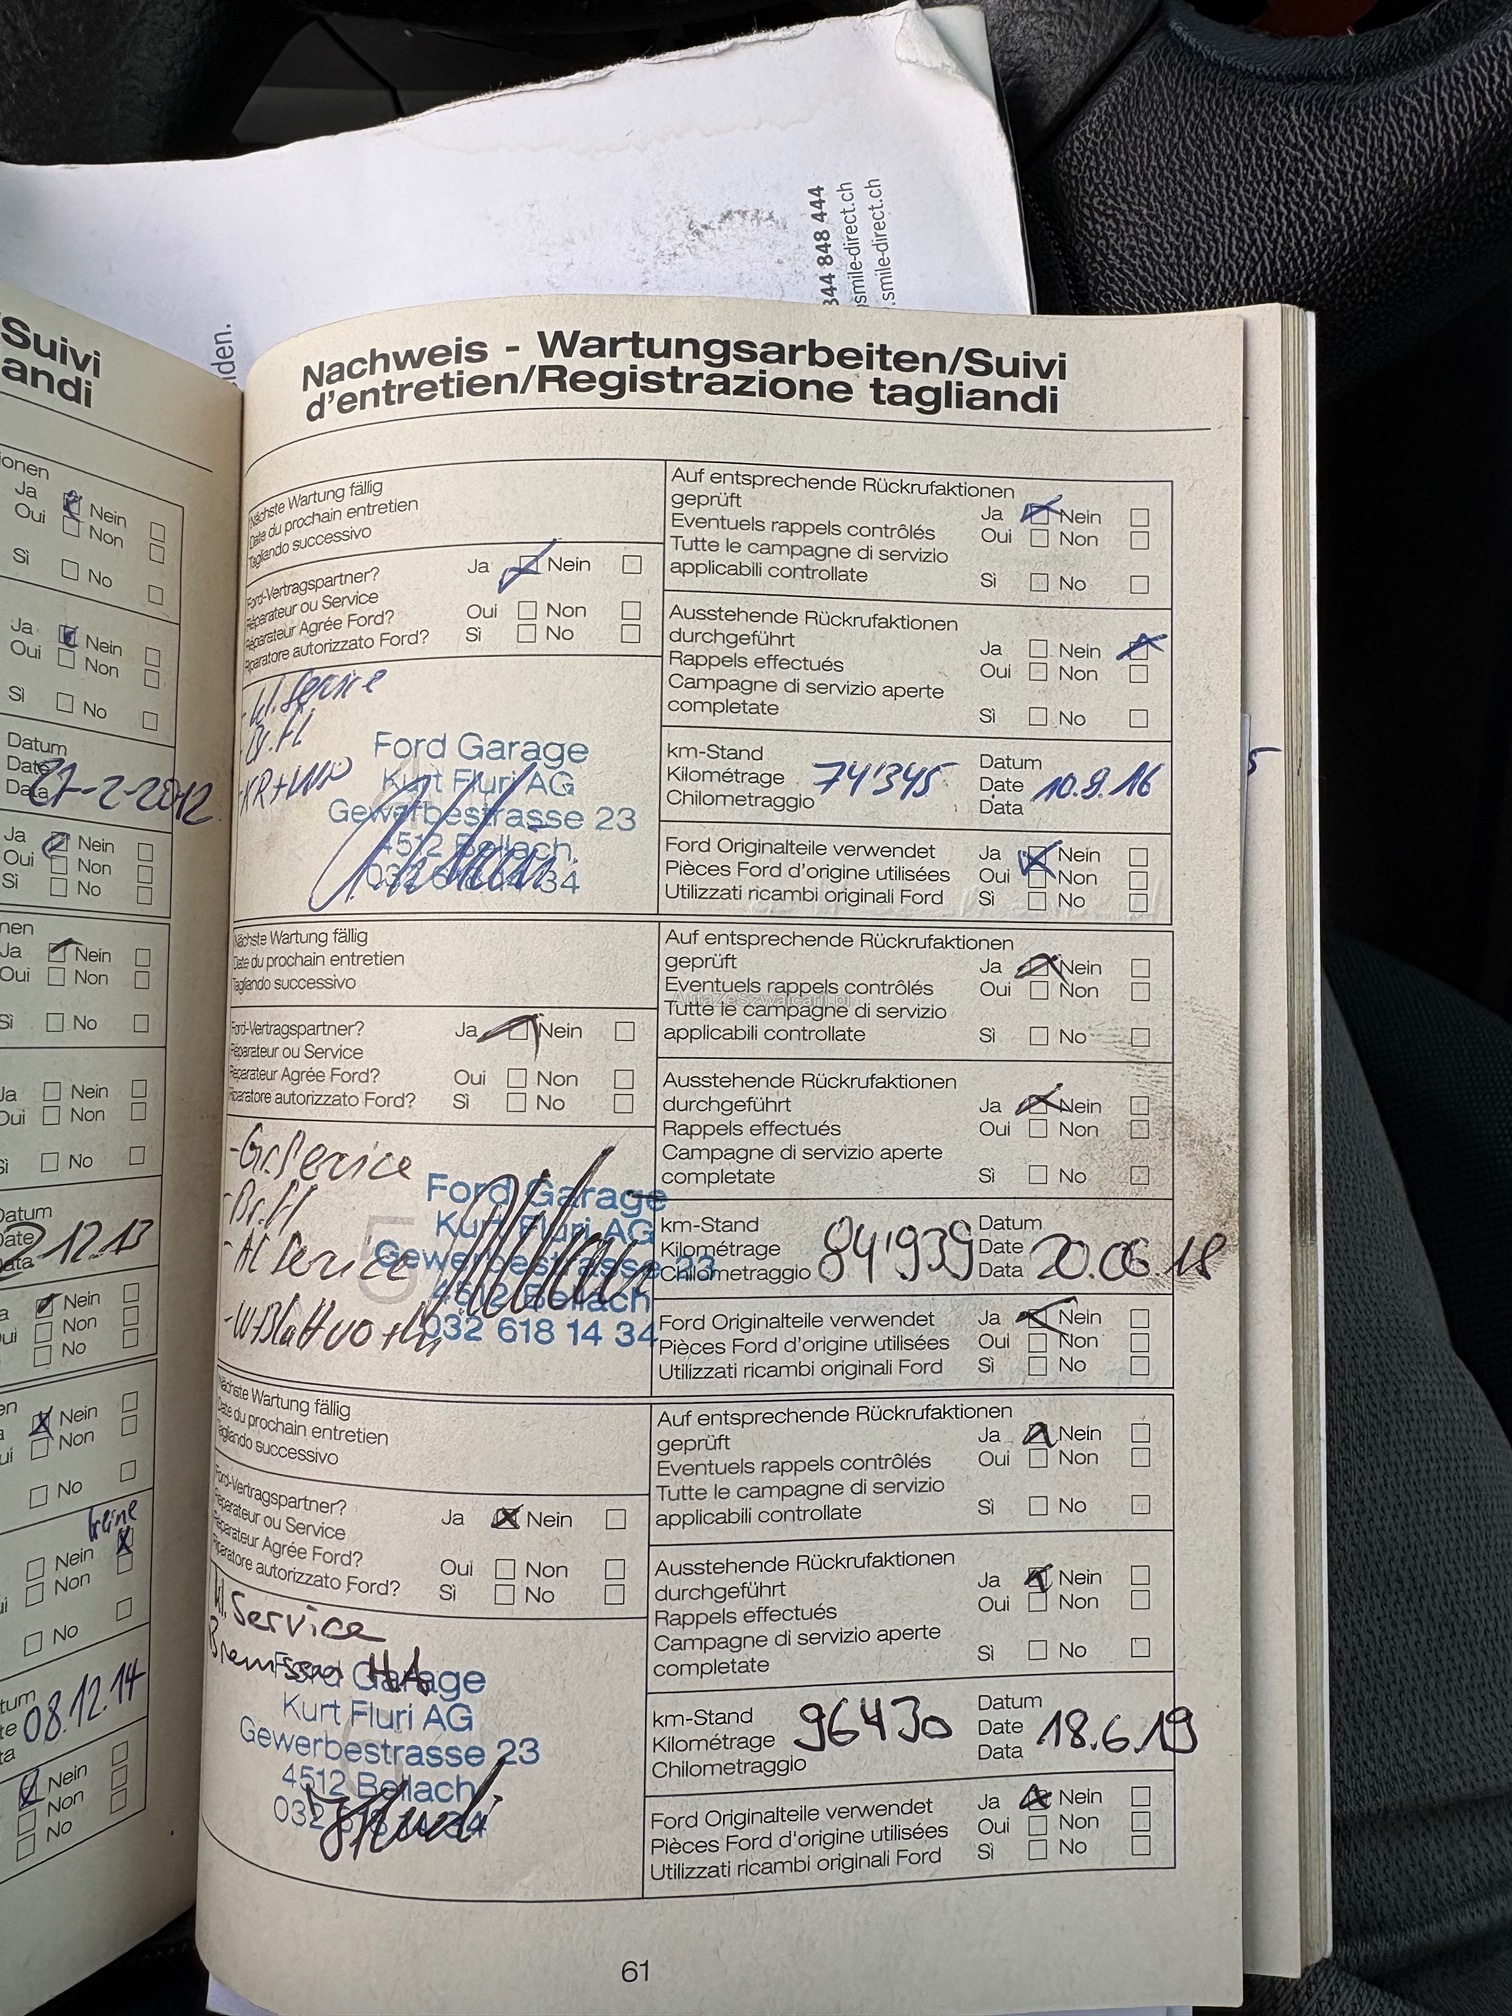 844 848 444
smile-direct.ch
.smile-direct.ch
iden.
/Suivi
andi
ionen
Ja Nein
Oui Non
Sì No
Ja Nein
Oui Non
Sì No
Datum
Date
Data 27-2-2012
Ja Nein
Oui Non
Sì No
nen
Ja Nein
Oui Non
Sì No
Ja Nein
Oui Non
Sì No
Datum
Date
Data 2.12.13
Nein
Non
No
en
Nein
Non
No
keine
Nein
Non
No
08.12.14
Nein
Non
No
Nachweis - Wartungsarbeiten/Suivi
d'entretien/Registrazione tagliandi
Nächste Wartung fällig
Date du prochain entretien
Tagliando successivo
Ford-Vertragspartner? Ja Nein
Réparateur ou Service
Réparateur Agrée Ford? Oui Non
Riparatore autorizzato Ford? Sì No
- kl. Service
- Br.Fl
Ford Garage
Kurt Fluri AG
Gewerbestrasse 23
4512 Bellach
032 618 14 34
Auf entsprechende Rückrufaktionen
geprüft Ja Nein
Eventuels rappels contrôlés Oui Non
Tutte le campagne di servizio
applicabili controllate Sì No
Ausstehende Rückrufaktionen
durchgeführt Ja Nein
Rappels effectués Oui Non
Campagne di servizio aperte
completate Sì No
km-Stand Datum
Kilométrage 74'345 Date 10.8.16
Chilometraggio Data
Ford Originalteile verwendet Ja Nein
Pièces Ford d'origine utilisées Oui Non
Utilizzati ricambi originali Ford Sì No
Nächste Wartung fällig
Date du prochain entretien
Tagliando successivo
Ford-Vertragspartner? Ja Nein
Réparateur ou Service
Réparateur Agrée Ford? Oui Non
Riparatore autorizzato Ford? Sì No
- Gr. Service
- Br.Fl
- AC Service
- W-Blatt vo + hi
Ford Garage
Kurt Fluri AG
Gewerbestrasse 23
4512 Bellach
032 618 14 34
Auf entsprechende Rückrufaktionen
geprüft Ja Nein
Eventuels rappels contrôlés Oui Non
AutaZeSzwajcarii.pl
Tutte le campagne di servizio
applicabili controllate Sì No
Ausstehende Rückrufaktionen
durchgeführt Ja Nein
Rappels effectués Oui Non
Campagne di servizio aperte
completate Sì No
km-Stand Datum
Kilométrage 84'939 Date 20.06.18
Chilometraggio Data
Ford Originalteile verwendet Ja Nein
Pièces Ford d'origine utilisées Oui Non
Utilizzati ricambi originali Ford Sì No
Nächste Wartung fällig
Date du prochain entretien
Tagliando successivo
Ford-Vertragspartner?
Réparateur ou Service Ja Nein
Réparateur Agrée Ford? Oui Non
Riparatore autorizzato Ford? Sì No
kl. Service
Bremsen HA
Ford Garage
Kurt Fluri AG
Gewerbestrasse 23
4512 Bellach
032 618 14 34
Auf entsprechende Rückrufaktionen
geprüft Ja Nein
Eventuels rappels contrôlés Oui Non
Tutte le campagne di servizio
applicabili controllate Sì No
Ausstehende Rückrufaktionen
durchgeführt Ja Nein
Rappels effectués Oui Non
Campagne di servizio aperte
completate Sì No
km-Stand Datum
Kilométrage 96430 Date 18.6.19
Chilometraggio Data
Ford Originalteile verwendet Ja Nein
Pièces Ford d'origine utilisées Oui Non
Utilizzati ricambi originali Ford Sì No
61